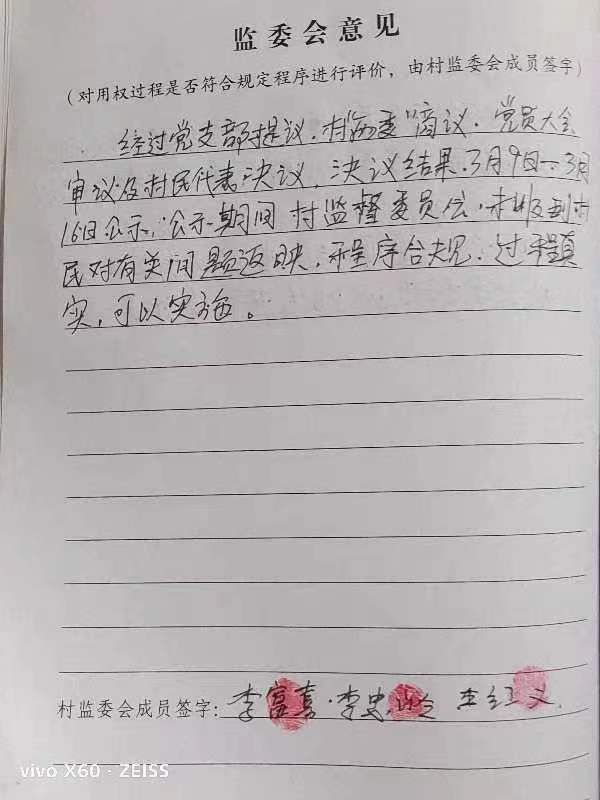 监委会意见
(对用权过程是否符合规定程序进行评价，由村监委会成员签字)
经过党支部提议，村两委商议，党员大会
审议及村民代表决议，决议结果3月9日一3月
16日公示，公示期间村监督委员会未收到村
民对有关问题返映，程序合规，过程真
实，可以实施。
村监委会成员签字：李富喜·李忠 李红义
vivo X60 · ZEISS